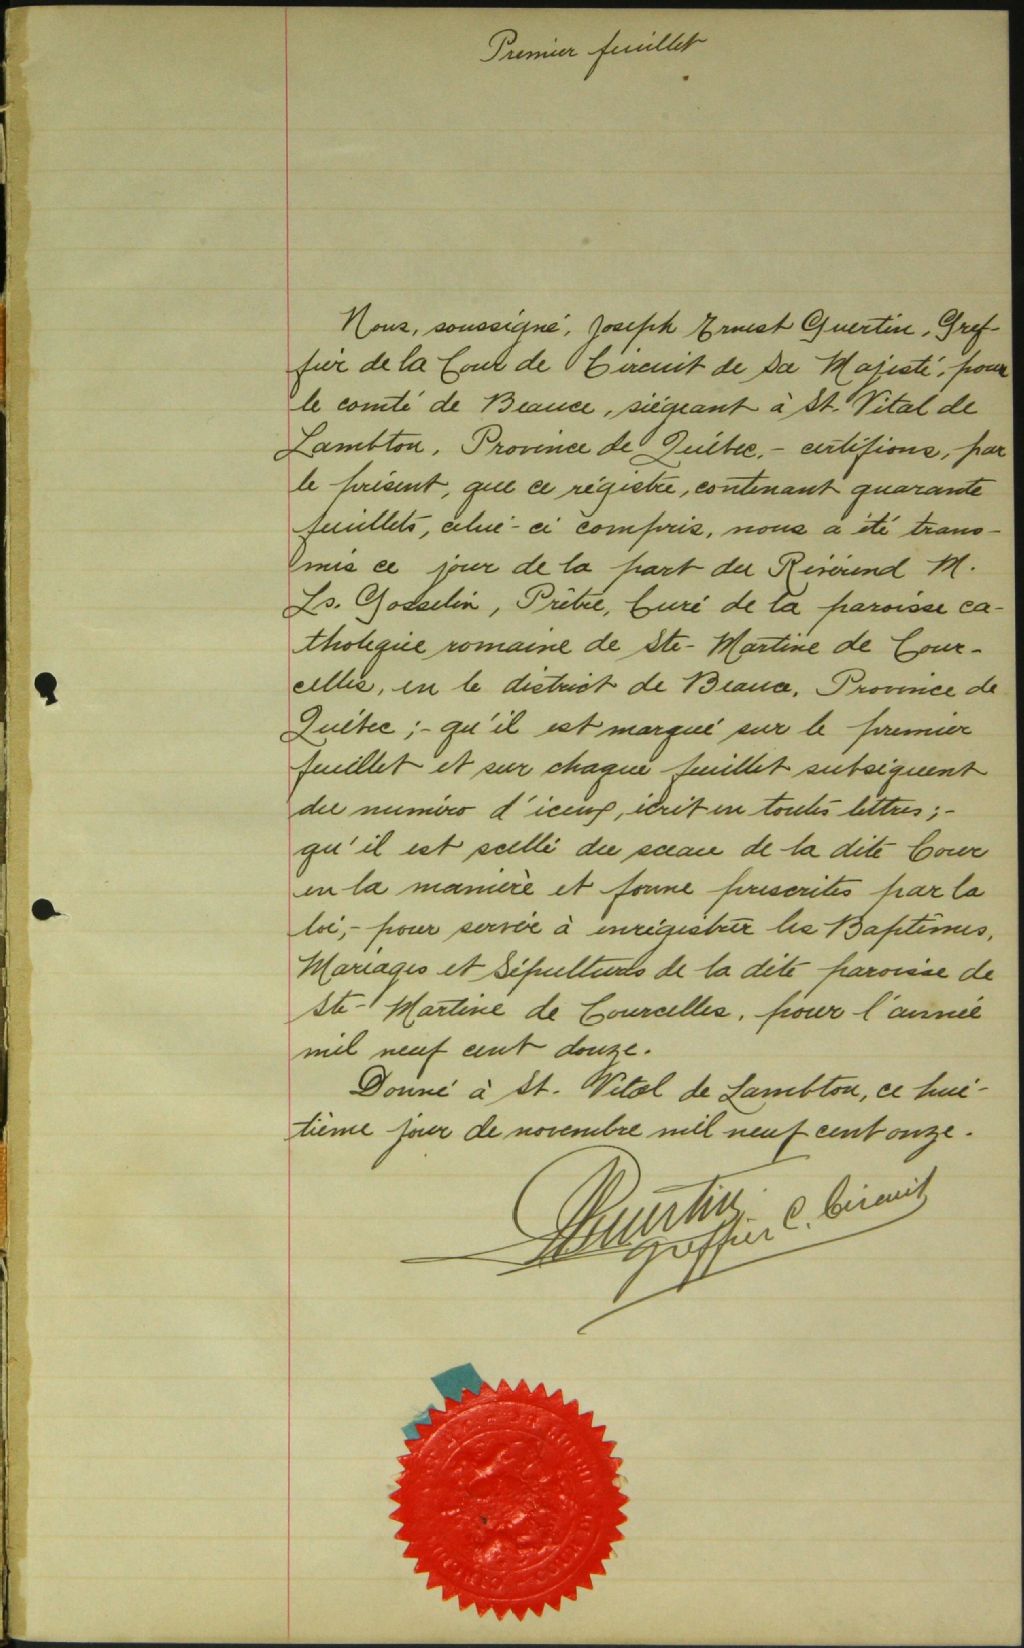 Premier feuillet
Nous, soussigné, Joseph Ernest Guertin, Gref-
fier de la Cour de Circuit de Sa Majesté, pour
le comté de Beauce, siégeant à St. Vital de
Lambton, Province de Québec, - certifions, par
le présent, que ce régistre, contenant quarante
feuillets, celui-ci compris, nous a été trans-
mis ce jour de la part du Révérend M.
Ls. Gosselin, Prêtre, Curé de la paroisse ca-
tholique romaine de Ste-Martine de Cour-
celles, en le district de Beauce, Province de
Québec ;- qu'il est marqué sur le premier
feuillet et sur chaque feuillet subséquent
du numéro d'iceux, écrit en toutes lettres ;-
qu'il est scellé du sceau de la dite Cour
en la manière et forme prescrites par la
loi,- pour servir à enrégistrer les Baptêmes,
Mariages et Sépultures de la dite paroisse de
Ste-Martine de Courcelles, pour l'année
mil neuf cent douze.
Donné à St. Vital de Lambton, ce hui-
tième jour de novembre mil neuf cent onze.
Guertin
Greffier C. Circuit